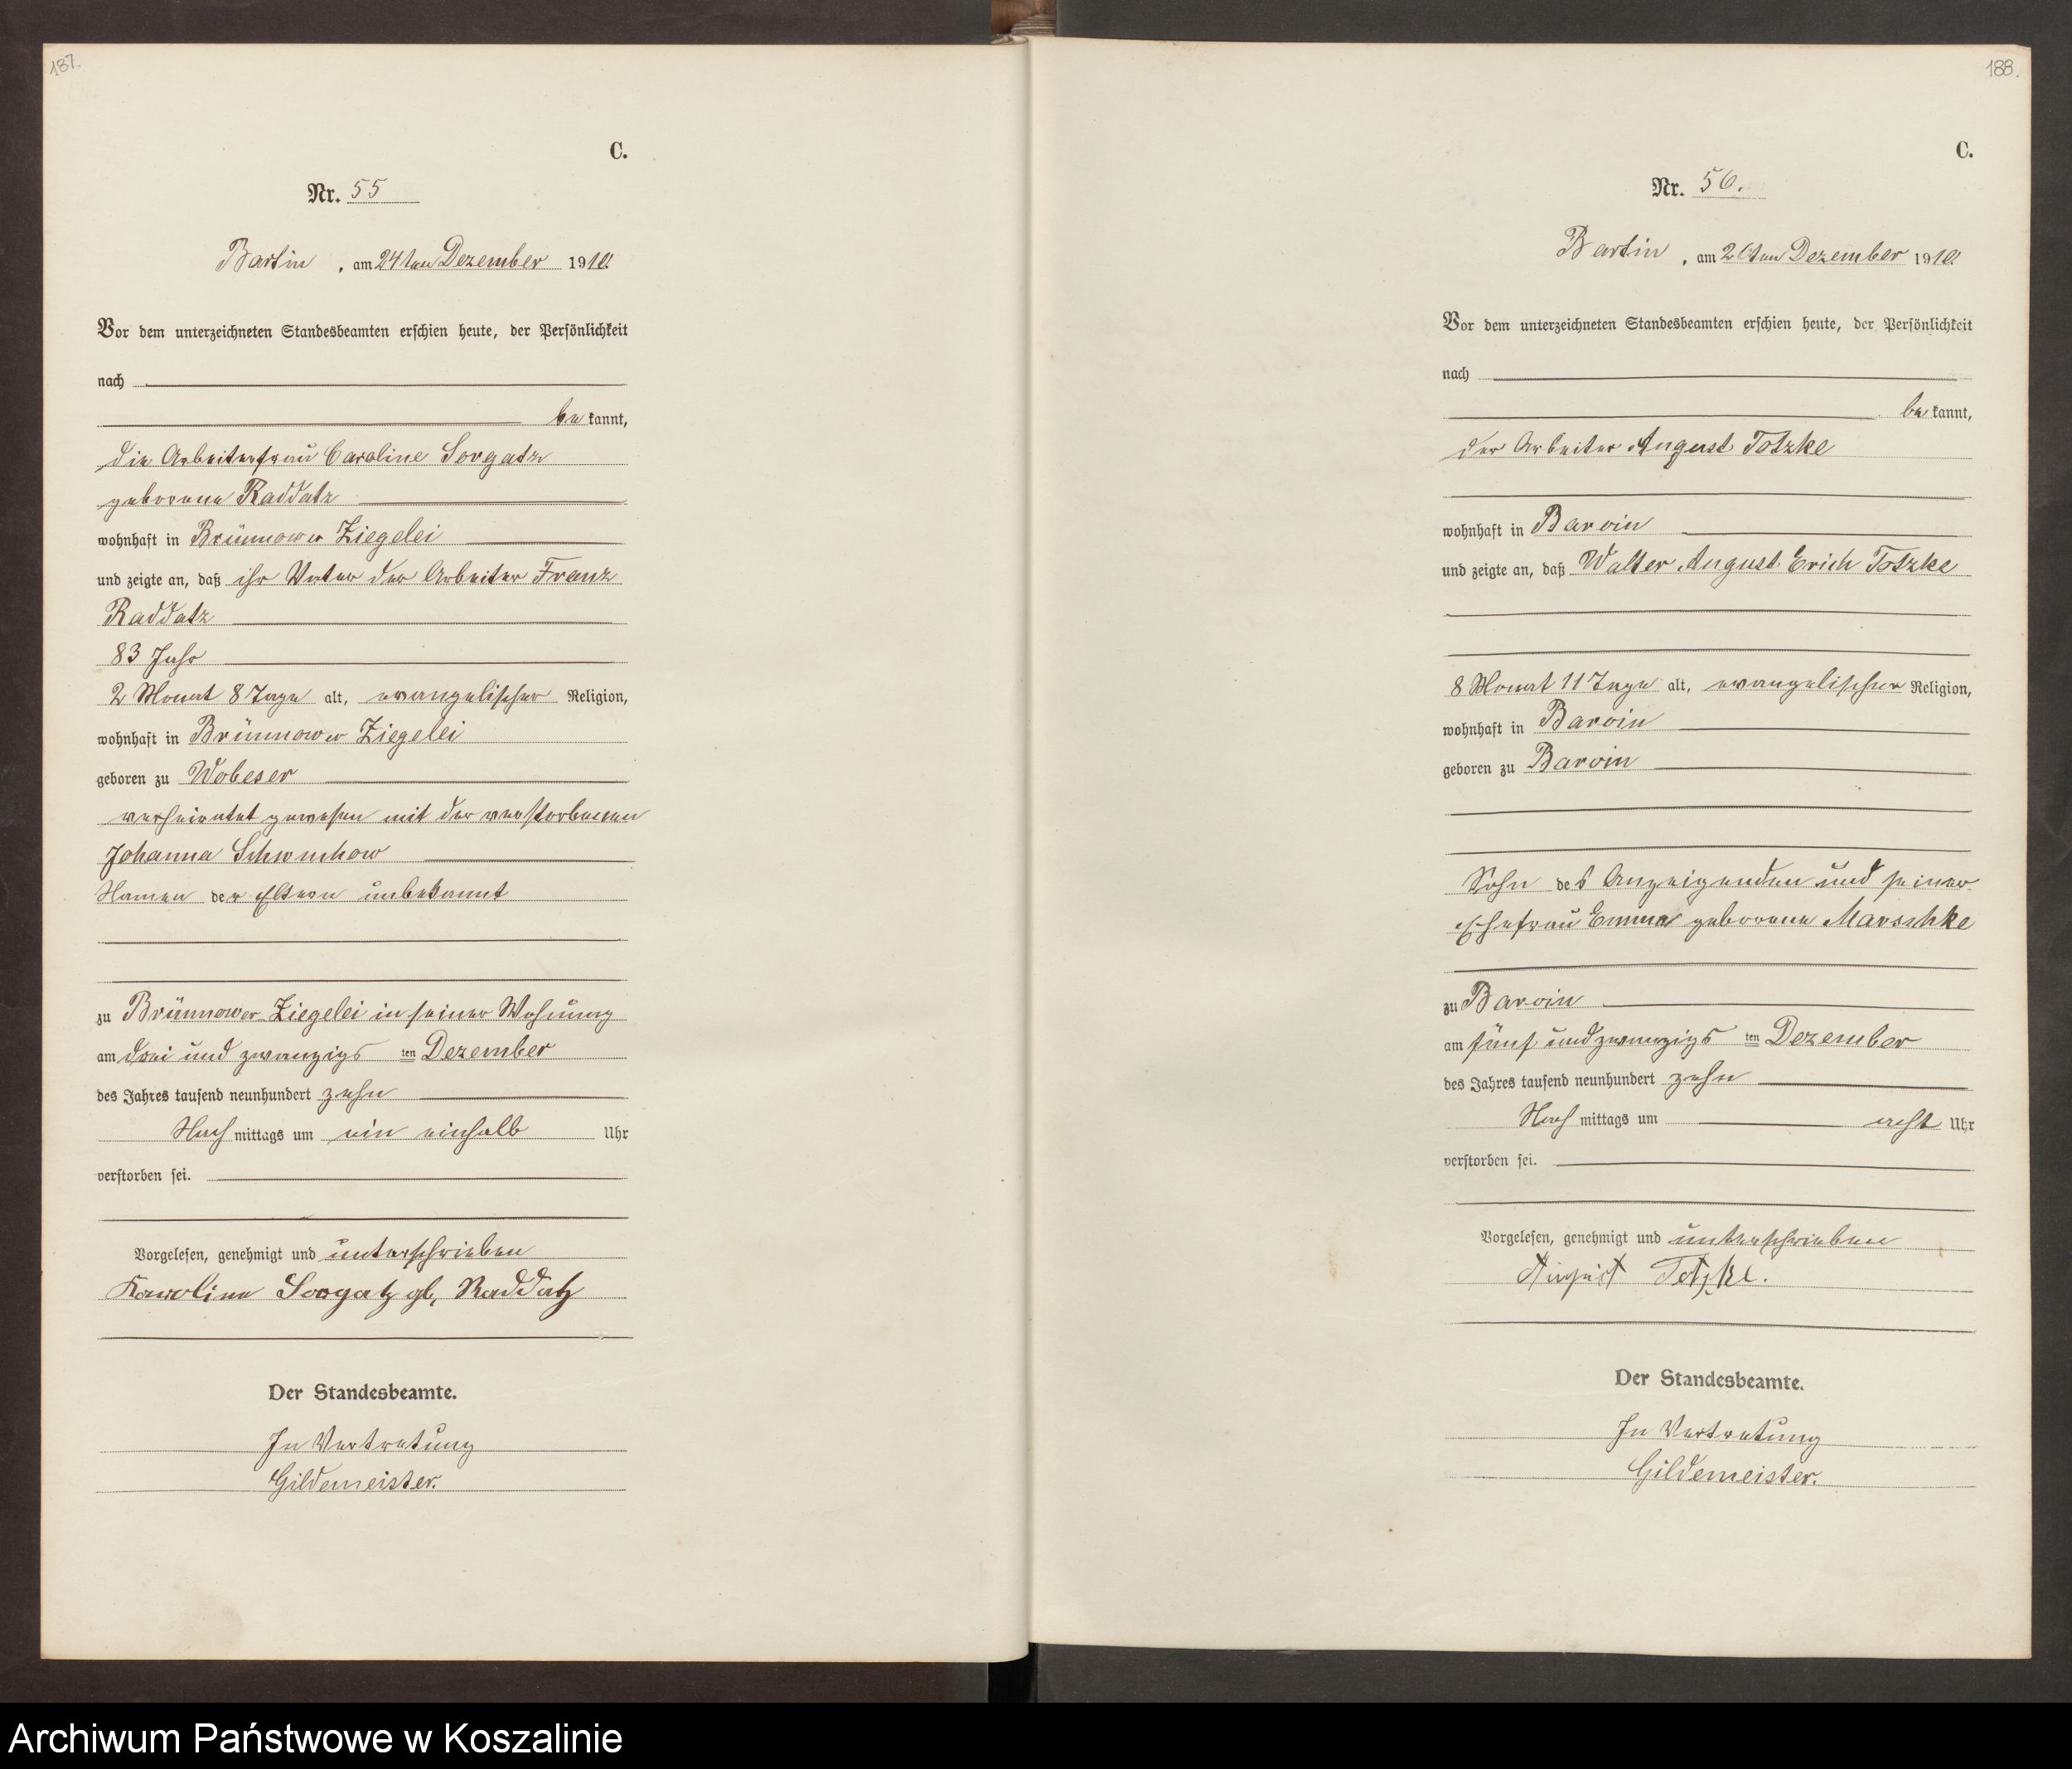 187.
C.
Nr. 55
Bartin, am 24ten Dezember 1910.
Vor dem unterzeichneten Standesbeamten erschien heute, der Persönlichkeit
nach
bekannt,
die Arbeiterfrau Caroline Sorgatz
geborene Raddatz
wohnhaft in Brünnower Ziegelei
und zeigte an, daß ihr Vater der Arbeiter Franz
Raddatz
83 Jahr
2 Monat 8 Tage alt, evangelischer Religion,
wohnhaft in Brünnower Ziegelei
geboren zu Wobeser
verheiratet gewesen mit der verstorbenen
Johanna Schwuchow
Namen der Eltern unbekannt
zu Brünnower Ziegelei in seiner Wohnung
am drei und zwanzigsten Dezember
des Jahres tausend neunhundert zehn
Nachmittags um ein einhalb Uhr
verstorben sei.
Vorgelesen, genehmigt und unterschrieben
Karoline Sorgatz gb, Raddatz
Der Standesbeamte.
In Vertretung
Gildemeister.
188.
C.
Nr. 56.
Bartin, am 26ten Dezember 1910.
Vor dem unterzeichneten Standesbeamten erschien heute, der Persönlichkeit
nach
bekannt,
der Arbeiter August Totzke
wohnhaft in Barvin
und zeigte an, daß Walter August Erich Totzke
8 Monat 11 Tage alt, evangelischer Religion,
wohnhaft in Barvin
geboren zu Barvin
Sohn des Anzeigenden und seiner
Ehefrau Emma geborene Marschke
zu Barvin
am fünf und zwanzigsten Dezember
des Jahres tausend neunhundert zehn
Nachmittags um acht Uhr
verstorben sei.
Vorgelesen, genehmigt und unterschrieben
August Totzke.
Der Standesbeamte.
In Vertretung
Gildemeister.
Archiwum Państwowe w Koszalinie